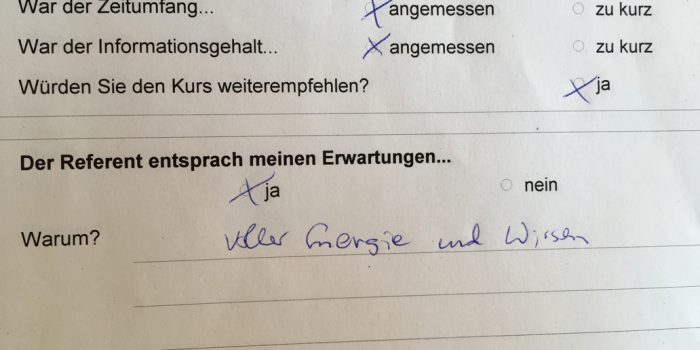 War der Zeitumfang... angemessen zu kurz
War der Informationsgehalt... angemessen zu kurz
Würden Sie den Kurs weiterempfehlen? ja
Der Referent entsprach meinen Erwartungen...
ja nein
Warum? voller Energie und Wissen